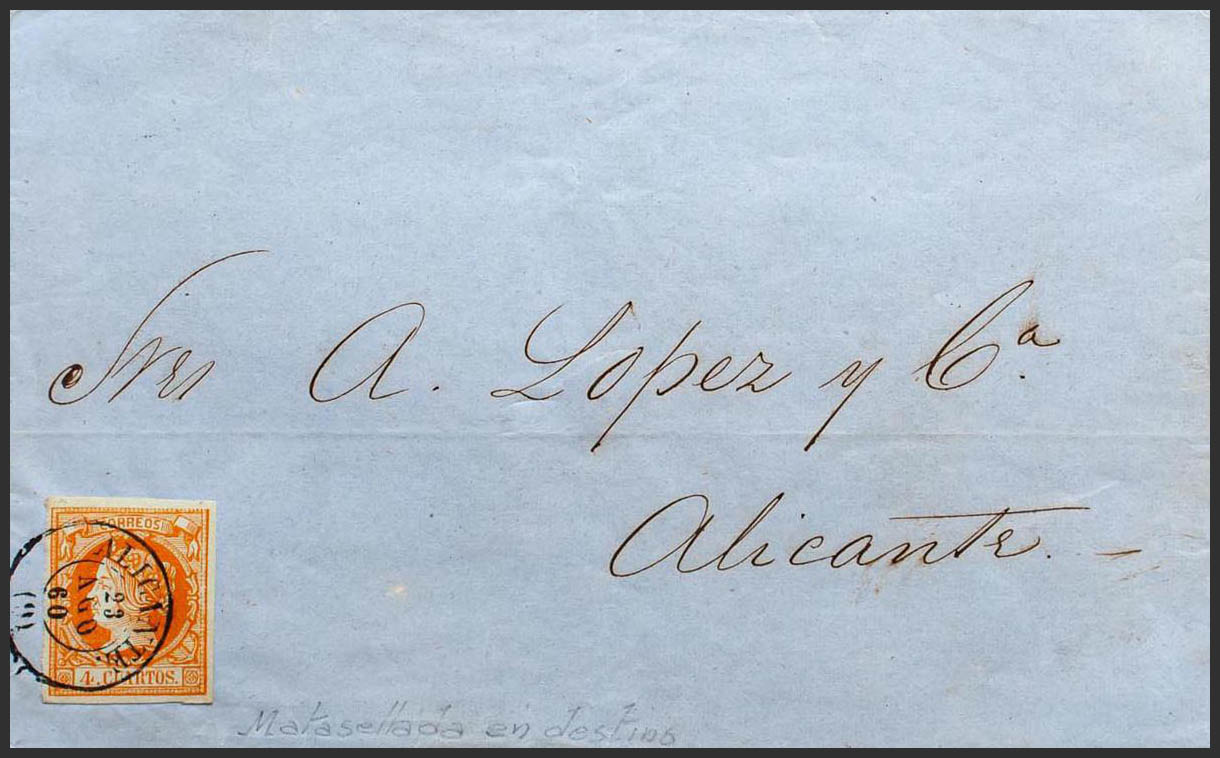 Sres A. Lopez y Cª.
Alicante. —
CORREOS
ALICANTE.
23
AGO
60
4. CUARTOS.
Matasellada en destino